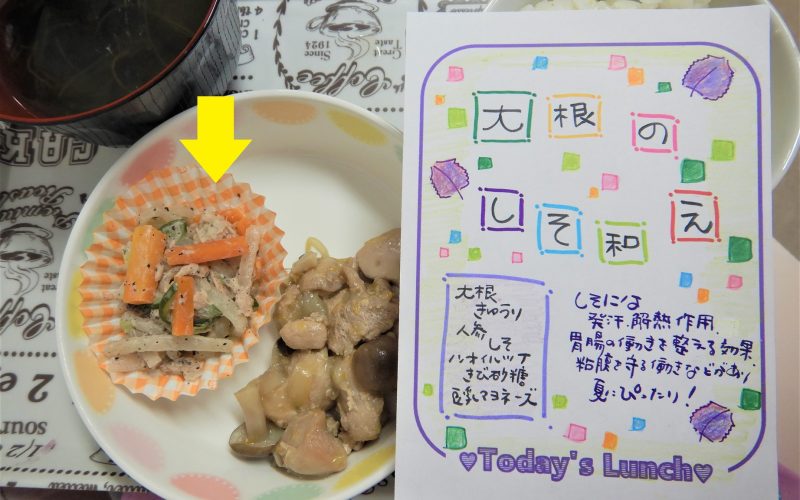 大根の
しそ和え
大根
きゅうり
人参
しそ
ノンオイルツナ
きび砂糖
豆乳マヨネーズ
しそには
発汗、解熱作用、
胃腸の働きを整える効果
粘膜を守る働きなどがあり
夏にぴったり！
Today's Lunch
Since
1924
Great
Taste
Coffee
CAK
2 e
sour
1/2